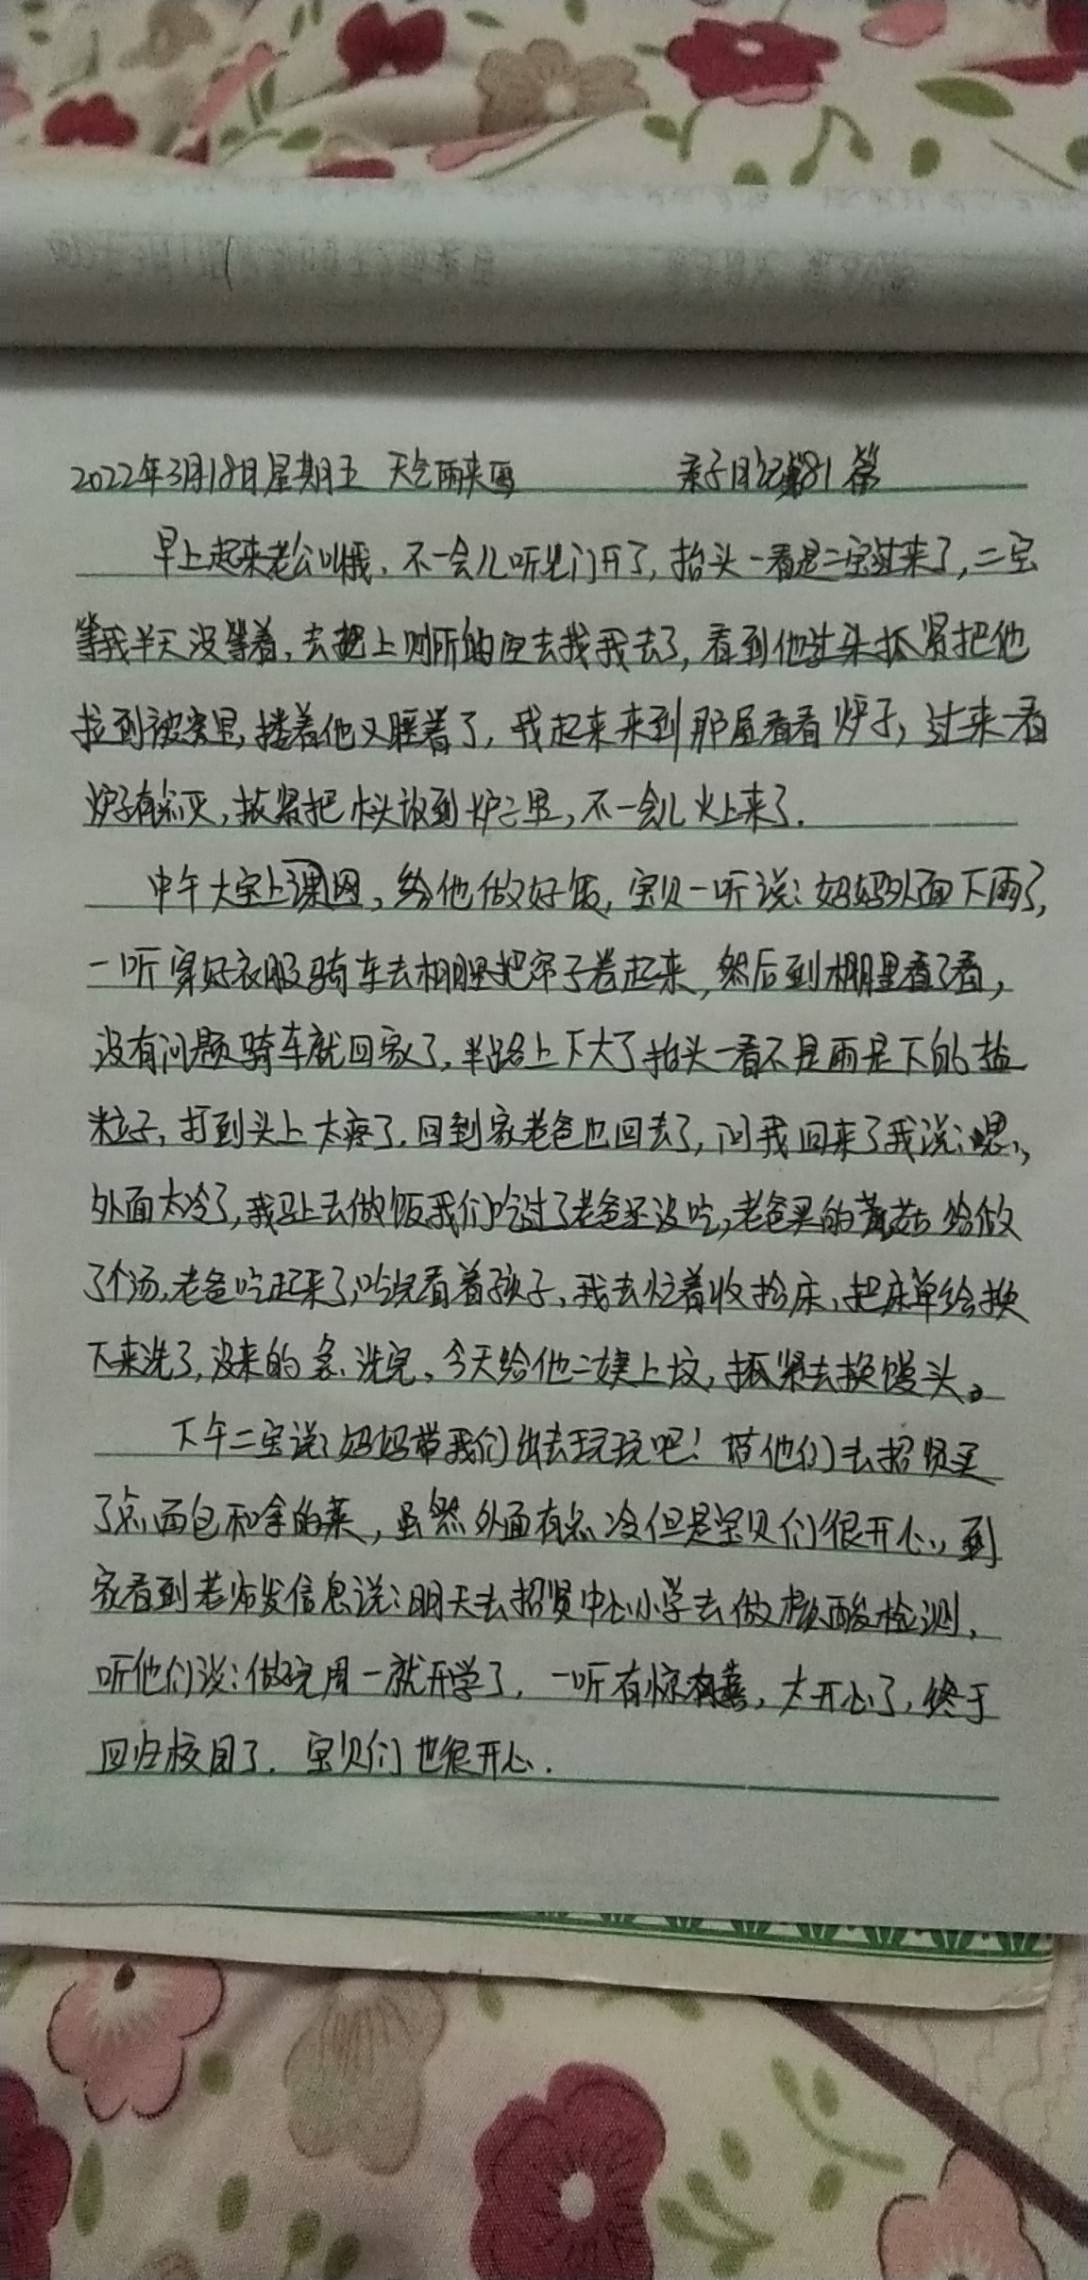 2022年3月18日星期五 天气雨夹雪 亲子日记第81篇
早上起来老公叫我,不一会儿听见门开了,抬头一看是二宝过来了,二宝
等我半天没等着,去把上厕所的 去找我去了,看到他过来抓紧把他
拉到被窝里,搂着他又睡着了,我起来来到那屋看看炉子,过来一看
炉子有点灭,抓紧把木头放到炉子里,不一会儿火上来了.
中午大宝上课网,给他做好饭,宝贝一听说:妈妈外面下雨了,
一听穿好衣服骑车去棚里把帘子卷起来,然后到棚里看了看,
没有问题骑车就回家了,半路上下大了抬头一看不是雨是下的盐
粒子,打到头上太疼了.回到家老爸也回去了,问我回来了我说:嗯,
外面太冷了,我马上去做饭我们吃过了老爸还没吃,老爸买的蘑菇给做
了个汤,老爸吃起来了,吃完看着孩子,我去忙着收拾床,把床单给换
下来洗了,没来的急洗完,今天给他二婊上坟,抓紧去换馒头。
下午二宝说:妈妈带我们出去玩玩吧!带他们去招贤买
了点面包和拿的菜,虽然外面有点冷但是宝贝们很开心,到
家看到老师发信息说:明天去招贤中心小学去做核酸检测,
听他们说:做完周一就开学了,一听有惊有喜,太开心了,终于
回归校园了.宝贝们也很开心.